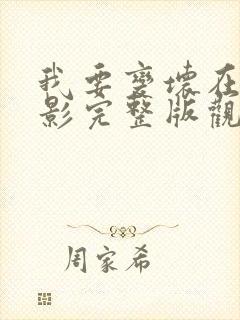 我要變壞在
影完整版觀
周家希